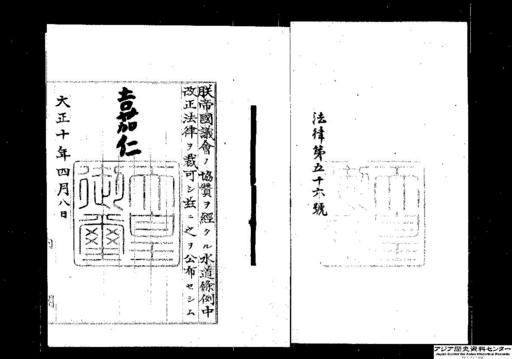 法律第五十六號
朕帝國議會ノ協賛ヲ經タル水道條例中
改正法律ヲ裁可シ玆ニ之ヲ公布セシム
嘉仁
大正十年四月八日
アジア歴史資料センター
Japan Center for Asian Historical Records